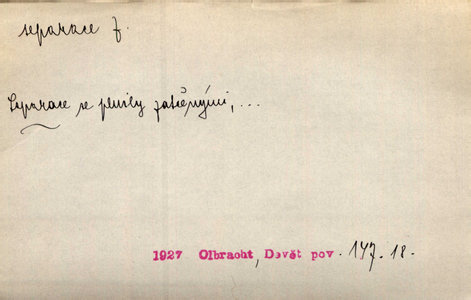 separace f.
Separace se plnily zatčenými, ...
1927 Olbracht, Devět pov. 147. 18.